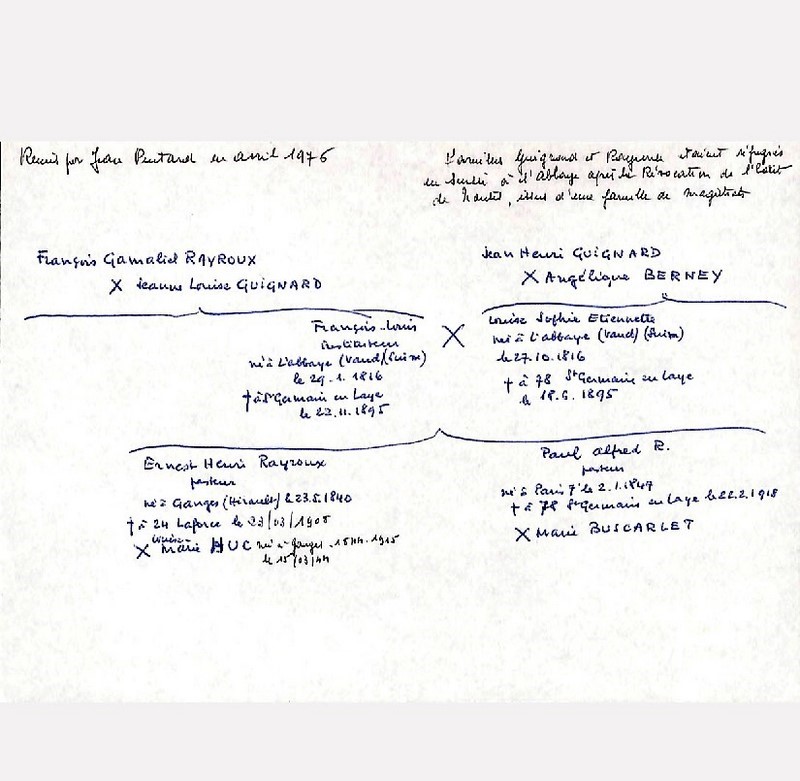 Remis par Jean Pentard en avril 1976
Familles Guignard et Rayroux étaient réfugiés
en Suisse à l'Abbaye après la Révocation de l'Edit
de Nantes, issus d'une famille de magistrats
François Gamaliel RAYROUX
X Jeanne Louise GUIGNARD
Jean Henri GUIGNARD
X Angélique BERNEY
François-Louis
instituteur
né à L'abbaye (Vaud)(Suisse)
le 29.1.1816
† à St Germain en Laye
le 22.11.1895
X
Louise Sophie Etiennette
né à L'abbaye (Vaud) (Suisse)
le 27.10.1816
† à 78 St Germain en Laye
le 18.5.1895
Ernest Henri Rayroux
pasteur
né à Ganges (Hérault) le 23.5.1840
† à 24 Laforce le 23/03/1908
X Marie HUC né à Ganges 1844-1915
le 15/03/44
Paul Alfred R.
pasteur
né à Paris 7e le 2.1.1847
† à 78 St Germain en Laye le 22.2.1918
X Marie BUSCARLET